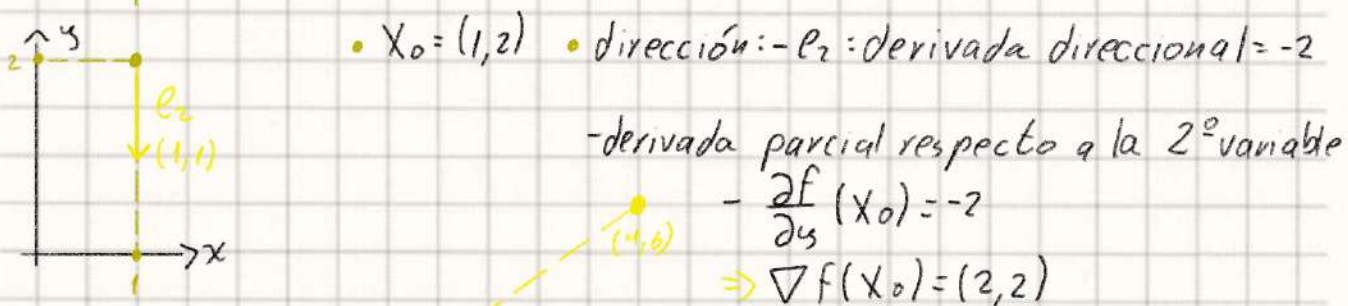 y
2
• X₀ = (1,2) • dirección: -e₂ : derivada direccional = -2
e₂
(1,1)
-derivada parcial respecto a la 2º variable
- ∂f/∂y (X₀) = -2
(4,6)
⇒ ∇f(X₀) = (2,2)
x
1